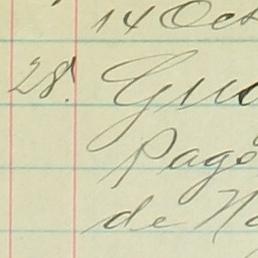 14 Oct
28. Gua
Pago
de No